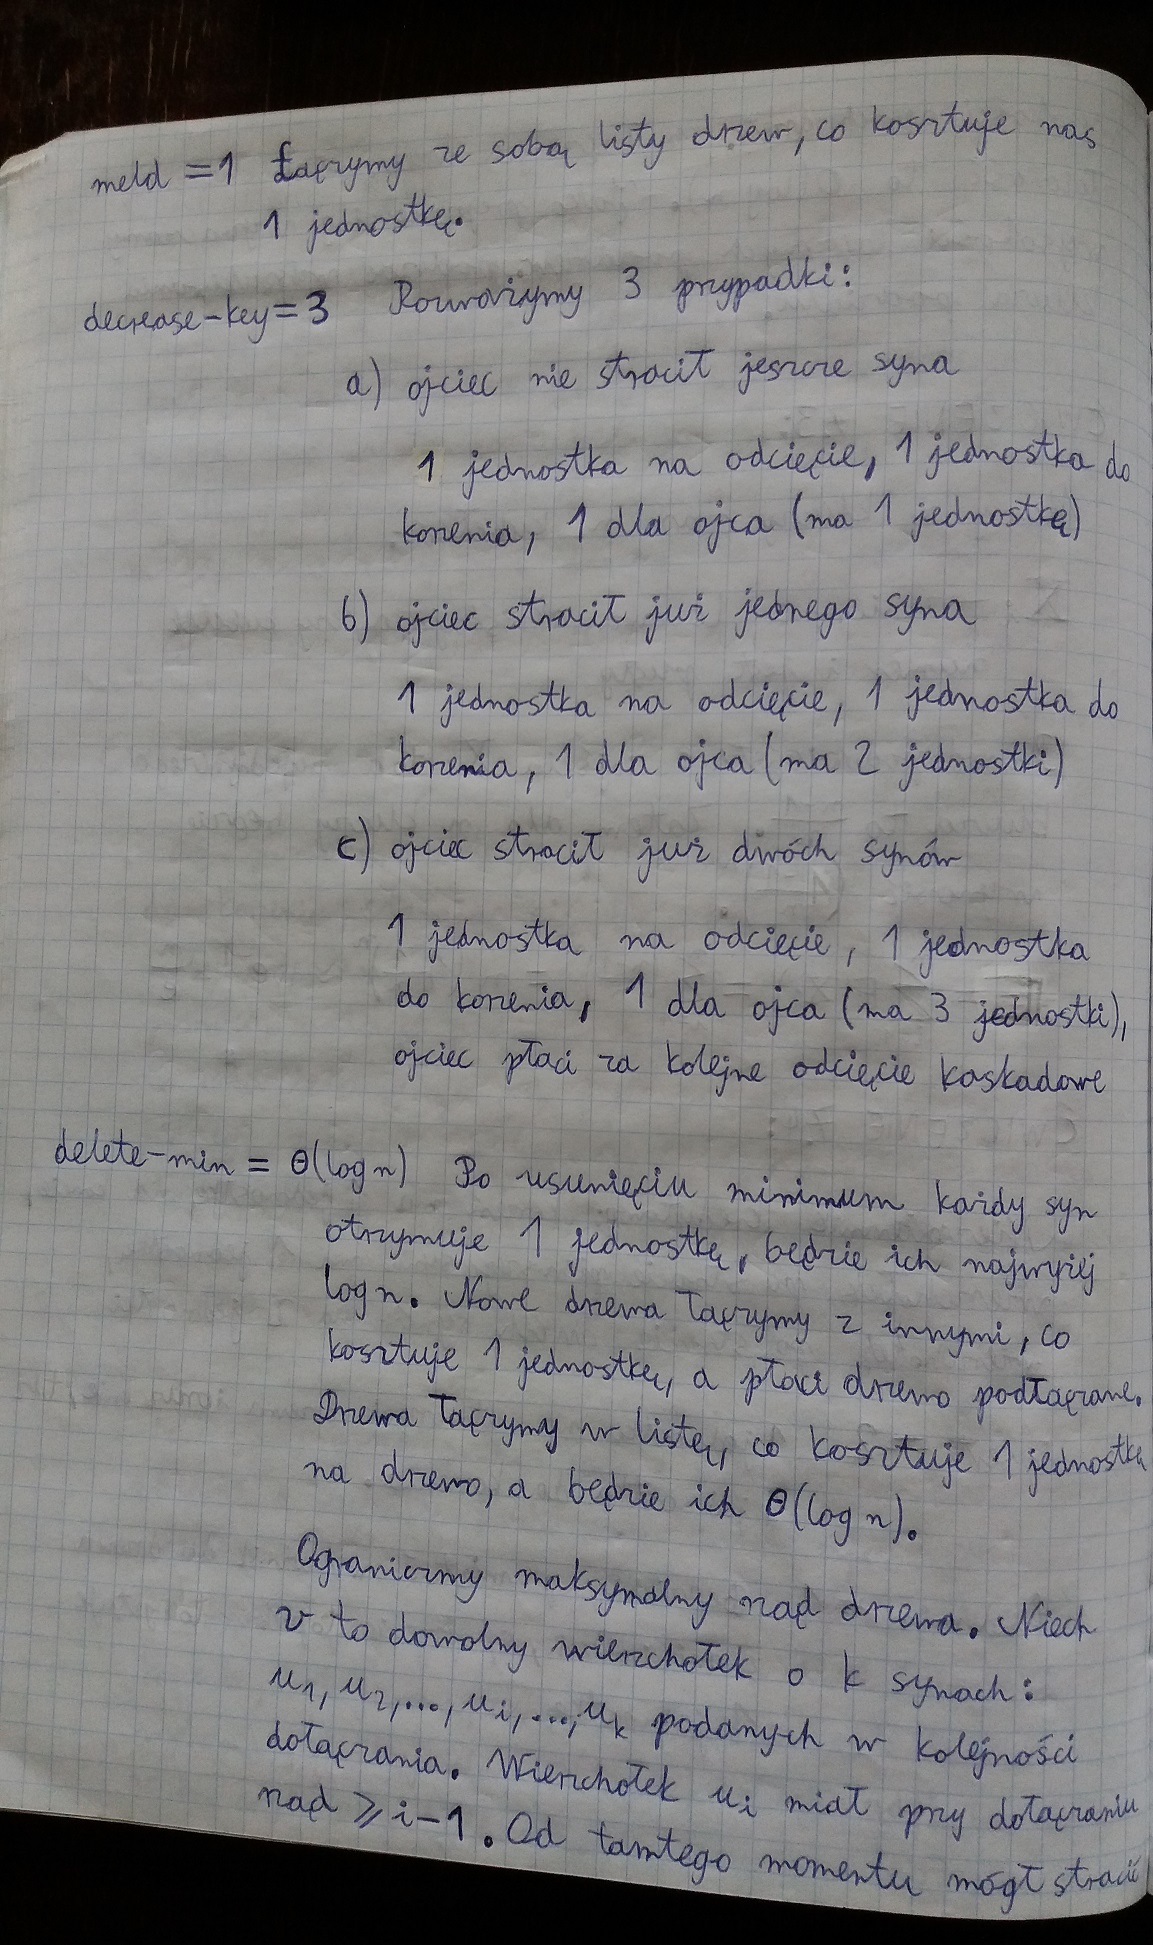 meld = 1 Łączymy ze sobą listy drzew, co kosztuje nas
1 jednostkę.
decrease-key = 3 Rozważymy 3 przypadki:
a) ojciec nie stracił jeszcze syna
1 jednostka na odcięcie, 1 jednostka do
korzenia, 1 dla ojca (ma 1 jednostkę)
b) ojciec stracił już jednego syna
1 jednostka na odcięcie, 1 jednostka do
korzenia, 1 dla ojca (ma 2 jednostki)
c) ojciec stracił już dwóch synów
1 jednostka na odcięcie, 1 jednostka
do korzenia, 1 dla ojca (ma 3 jednostki),
ojciec płaci za kolejne odcięcie kaskadowe
delete-min = Θ(log n) Po usunięciu minimum każdy syn
otrzymuje 1 jednostkę, będzie ich najwyżej
log n. Nowe drzewa łączymy z innymi, co
kosztuje 1 jednostkę, a płaci drzewo podłączane.
Drzewa łączymy w listę, co kosztuje 1 jednostkę
na drzewo, a będzie ich Θ(log n).
Ograniczmy maksymalny rząd drzewa. Niech
v to dowolny wierzchołek o k synach:
u₁, u₂, ..., uᵢ, ..., uₖ podanych w kolejności
dołączania. Wierzchołek uᵢ miał przy dołączaniu
rząd ⩾ i-1. Od tamtego momentu mógł stracić